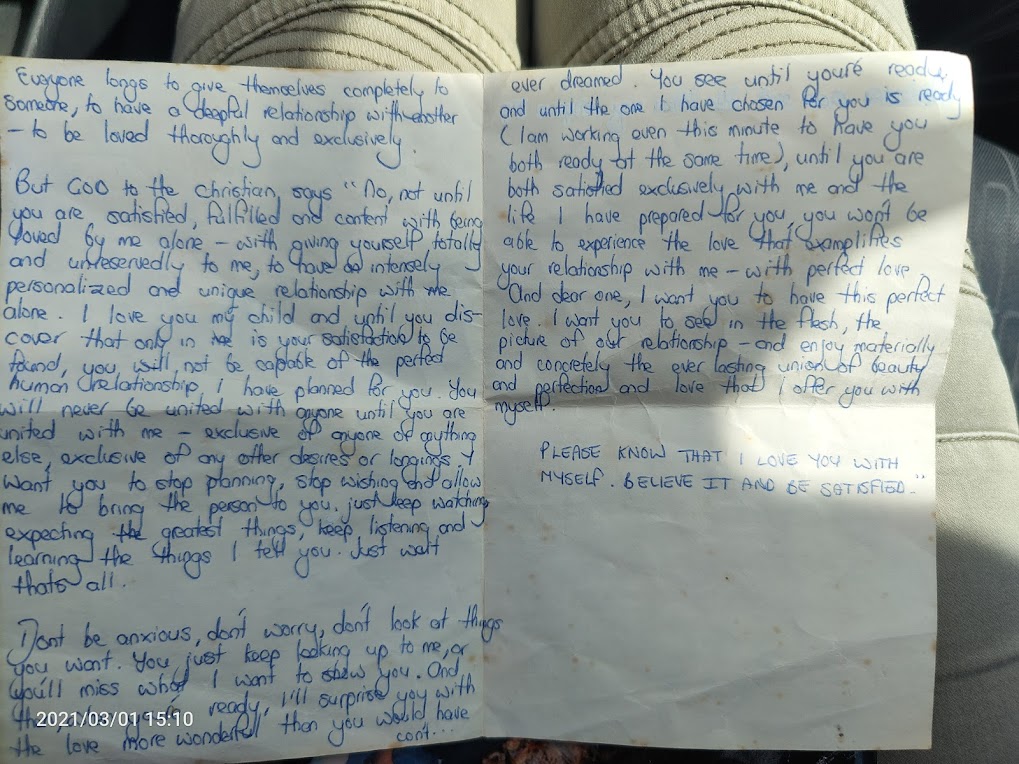 Everyone longs to give themselves completely to
someone, to have a deepful relationship with another
- to be loved thoroughly and exclusively.
But GOD to the christian, says "No, not until
you are satisfied, fulfilled and content with being
loved by me alone - with giving yourself totally
and unreservedly to me, to have an intensely
personalized and unique relationship with me
alone. I love you my child and until you dis-
cover that only in me is your satisfaction to be
found, you will not be capable of the perfect
human relationship i have planned for you. You
will never be united with anyone until you are
united with me - exclusive of anyone of anything
else, exclusive of any other desires or longings. I
want you to stop planning, stop wishing and allow
me to bring the person to you. just keep watching
expecting the greatest things, keep listening and
learning the things I tell you. Just wait
thats all.
Dont be anxious, don't worry, don't look at things
you want. You just keep looking up to me, or
you'll miss what I want to show you. And
ready, I'll surprise you with
the love more wonderful than you would have
cont...
ever dreamed. You see until you're ready
and until the one I have chosen for you is ready
(I am working even this minute to have you
both ready at the same time), until you are
both satisfied exclusively with me and the
life I have prepared for you, you won't be
able to experience the love that examplifies
your relationship with me - with perfect love.
And dear one, I want you to have this perfect
love. I want you to see in the flesh, the
picture of our relationship - and enjoy materially
and concretely the ever lasting union of beauty
and perfection and love that I offer you with
myself.
PLEASE KNOW THAT I LOVE YOU WITH
MYSELF. BELIEVE IT AND BE SATISFIED."
2021/03/01 15:10